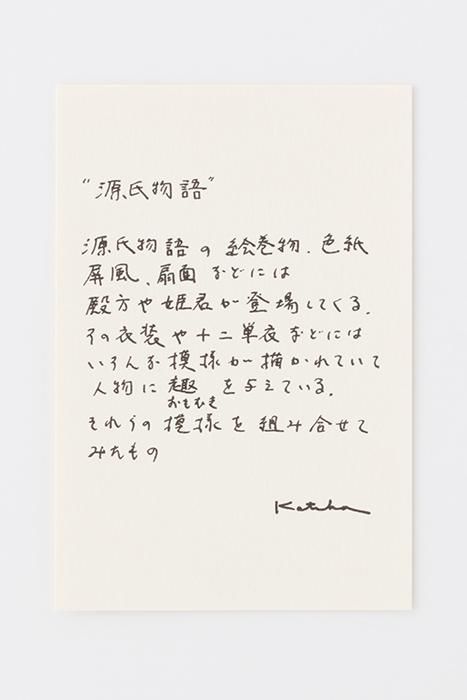 “源氏物語”
源氏物語の絵巻物、色紙
屏風、扇面などには
殿方や姫君が登場してくる。
その衣装や十二単衣などには
いろんな模様が描かれていて
人物に趣を与えている。
おもむき
それらの模様を組み合せて
みたもの